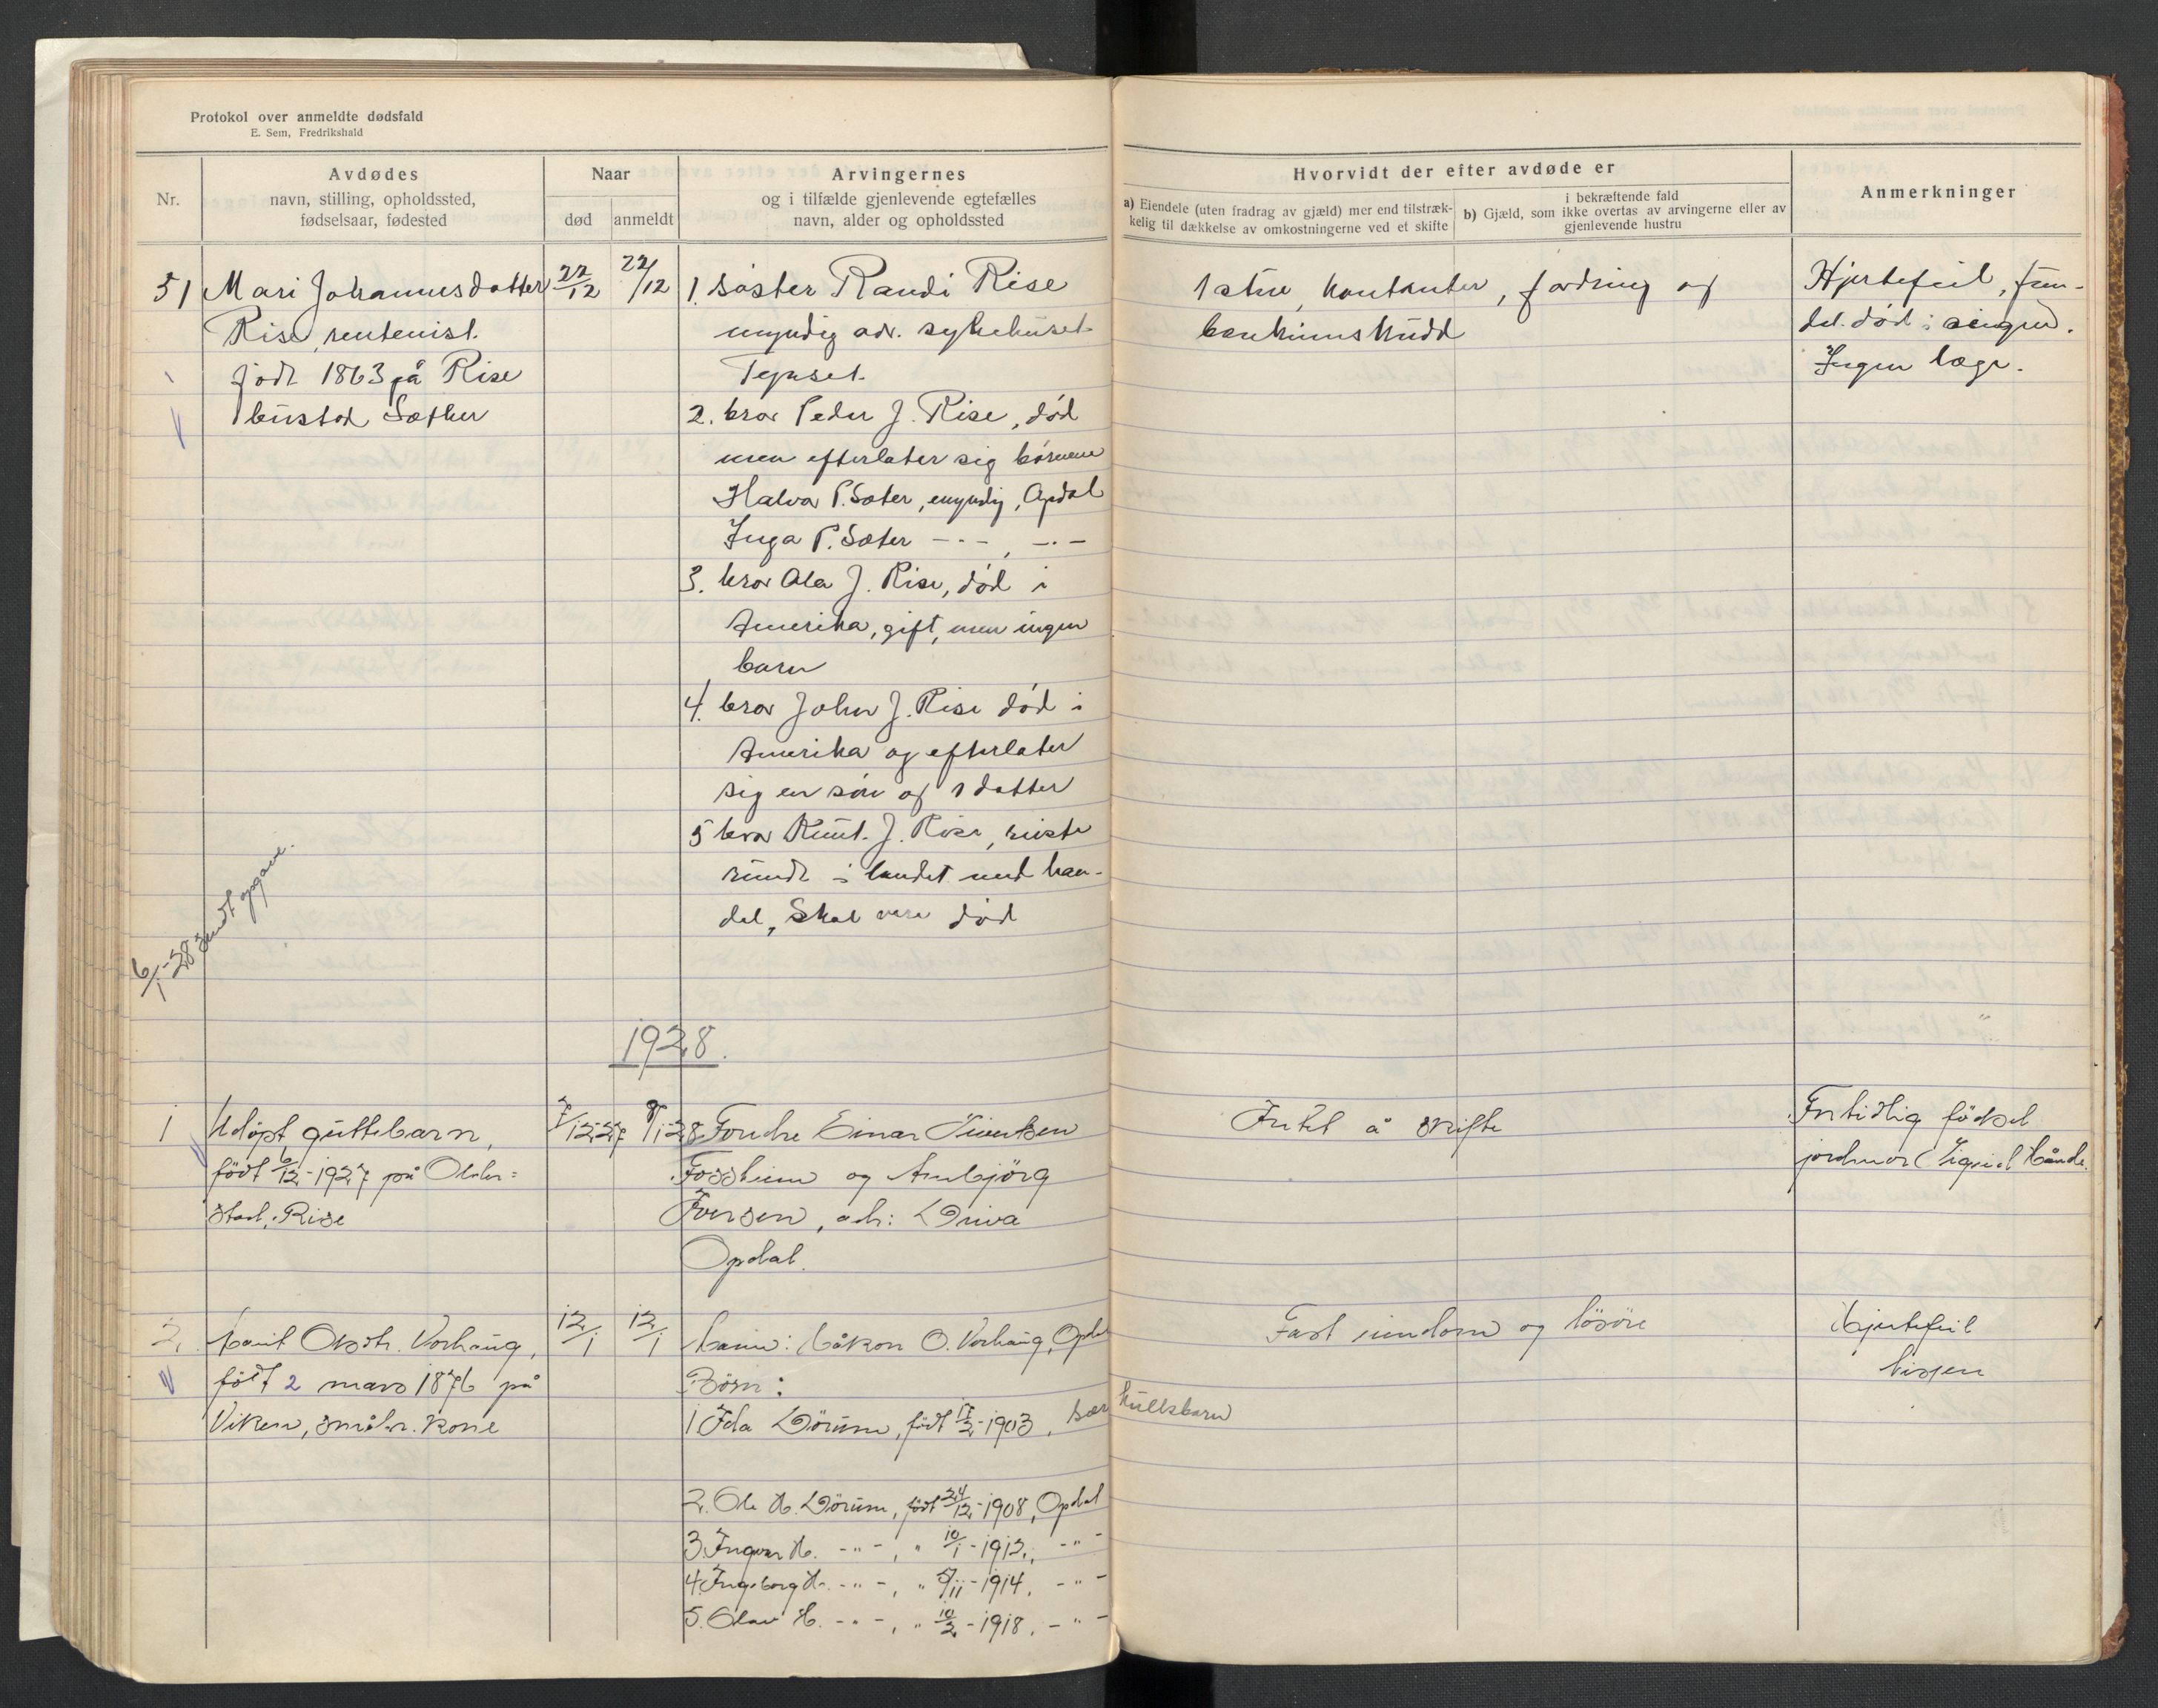 Protokol over anmeldte dødsfald
E. Sem, Fredrikshald
Nr.
Avdødes
navn, stilling, opholdssted,
fødselsaar, fødested
Naar
død
anmeldt
Arvingernes
og i tilfælde gjenlevende egtefælles
navn, alder og opholdssted
Hvorvidt der efter avdøde er
a) Eiendele (uten fradrag av gjæld) mer end tilstræk-
kelig til dækkelse av omkostningerne ved et skifte
i bekræftende fald
b) Gjæld, som ikke overtas av arvingerne eller av
gjenlevende hustru
Anmerkninger
51 Mari Johannesdatter
Rise, rentenist.
født 1863 på Rise
bustad Sæther
22/12
22/12
1. søster Randi Rise
myndig adr. sykehuset
Tynset.
2. bror Peder J. Rise, død
men efterlater sig børnene
Halvor P. Sæter, myndig, Opdal
Inga P. Sæter -"- , -"-
3. bror Ola J. Rise, død i
Amerika, gift, men ingen
barn
4. bror John J. Rise død i
Amerika og efterlater
sig en søn og 1 datter
5 bror Knut. J. Rise, reiste
rundt i landet med han-
del, Skal være død
1 stue, kontanter, fordring og
bankinnskudd
Hjertefeil, fun-
det død i sengen.
Ingen læge.
6/1-28 sendt opgave.
1928.
1 Udøpt guttebarn,
født 6/12-1927 på Olster=
stad, Rise
7/12-27
9/1-28
Foreldre Einar Sivertsen
Fossheim og Ambjørg
Iversen, adr: Driva
Opdal.
Intet å skifte
For tidlig fødsel
jordmor Sigrid Hånde.
2. Marit Olsdtr. Vorhaug,
født 2 mars 1876 på
Viken, småbr. kone
12/1
12/1
Mann: Håkon O. Vorhaug, Opdal
Børn:
1 Ida Dørum, født 17/2-1903, særkullsbarn
2. Ole H. Dørum, født 24/12-1908, Opdal
3. Ingvar H. -"-, " 10/1-1912, -"-
4. Ingeborg H. -"-, " 5/11-1914, -"-
5. Olav H. -"-, " 10/2-1918, -"-
Fast eiendom og løsøre
Hjertefeil
Nissen